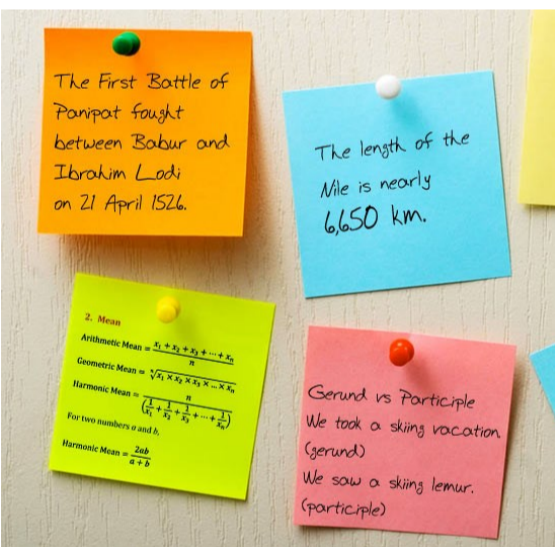 The First Battle of
Panipat fought
between Babur and
Ibrahim Lodi
on 21 April 1526.
The length of the
Nile is nearly
6,650 km.
2. Mean
Arithmetic Mean = (x₁ + x₂ + x₃ + ⋯ + xₙ) / n
Geometric Mean = ⁿ√(x₁ × x₂ × x₃ × ... × xₙ)
Harmonic Mean = n / (1/x₁ + 1/x₂ + 1/x₃ + ⋯ + 1/xₙ)
For two numbers a and b,
Harmonic Mean = 2ab / (a + b)
Gerund vs Participle
We took a skiing vacation
(gerund)
We saw a skiing lemur.
(participle)